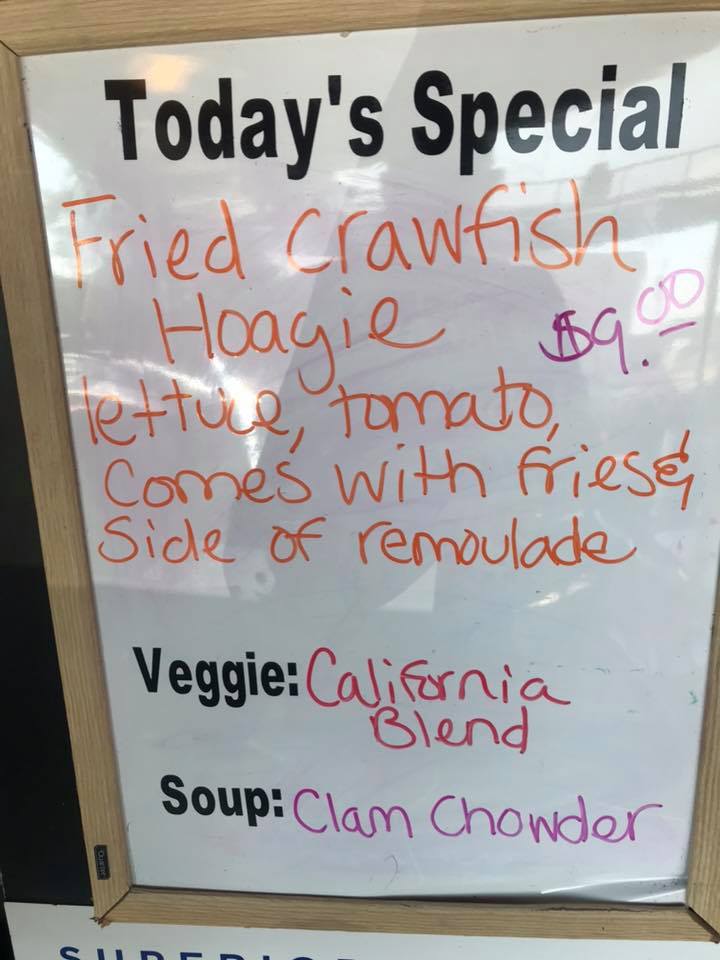 Today's Special
Fried Crawfish
Hoagie $9.00
lettuce, tomato,
Comes with fries &
Side of remoulade
Veggie: California
Blend
Soup: Clam Chowder
Quartet